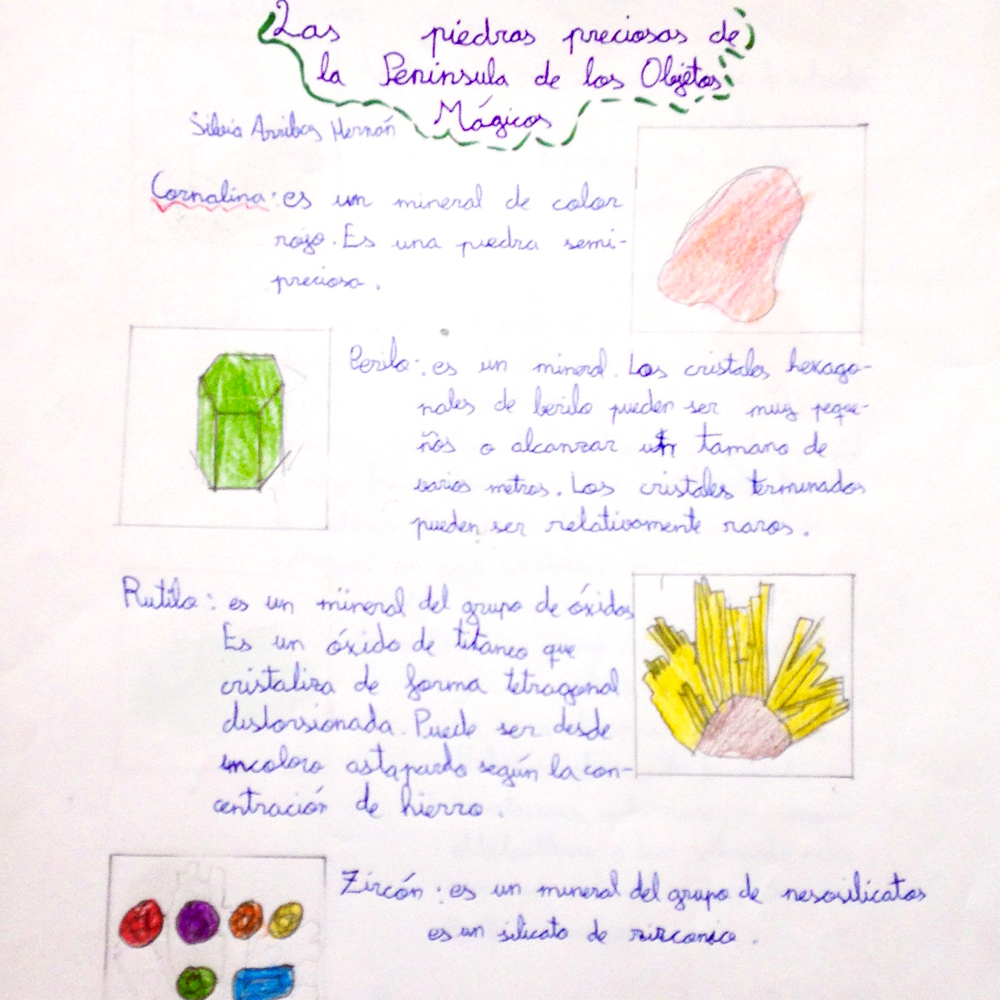 Las piedras preciosas de
la Península de los Objetos
Mágicos
Silvia Arribas Hernán
Cornalina: es un mineral de color
rojo. Es una piedra semi-
preciosa.
Berilo: es un mineral. Los cristales hexago-
nales de berilo pueden ser muy peque-
ños o alcanzar un tamano de
varios metros. Los cristales terminados
pueden ser relativamente raros.
Rutilo: es un mineral del grupo de óxidos
Es un óxido de titaneo que
cristaliza de forma tetragonal
distorsionada. Puede ser desde
incoloro asta pardo según la con-
centración de hierro.
Zircón: es un mineral del grupo de nesosilicatos
es un silicato de zirconio.